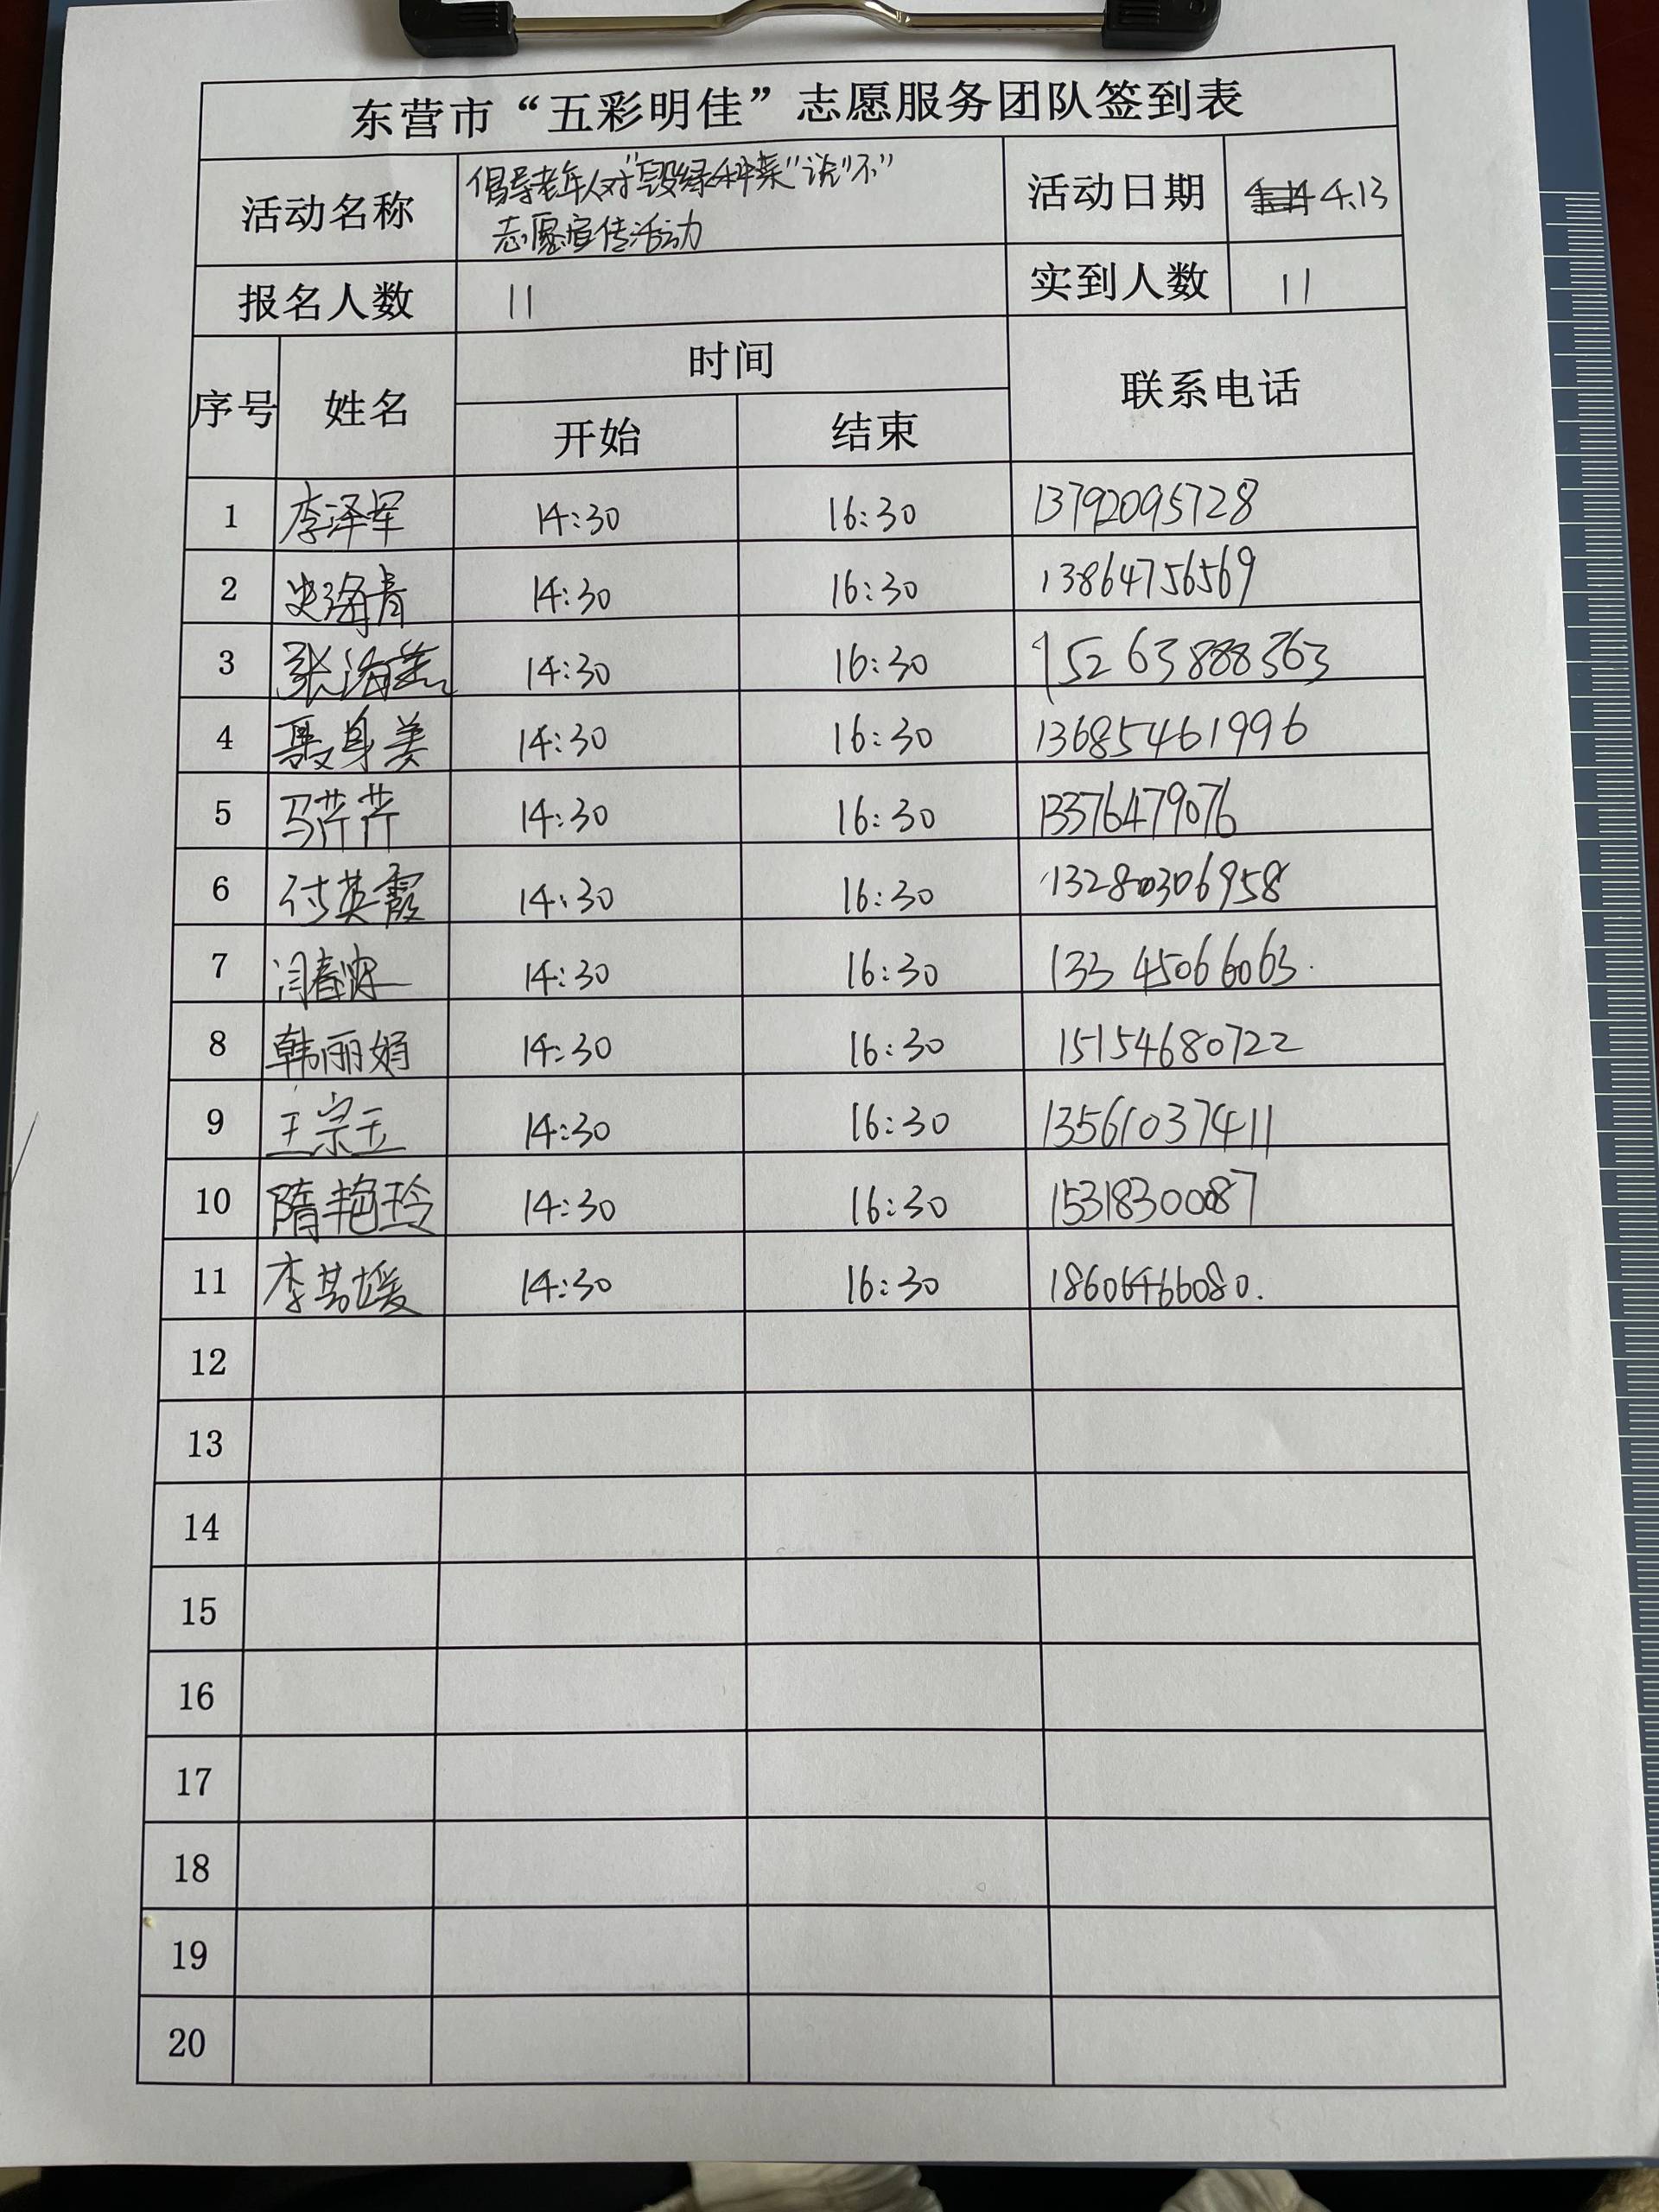 东营市“五彩明佳”志愿服务团队签到表
活动名称 倡导老年人对“毁绿种菜”说“不” 志愿宣传活动 活动日期 4.13
报名人数 11 实到人数 11
序号 姓名 时间 联系电话
开始 结束
1 李泽军 14:30 16:30 13792095728
2 史海青 14:30 16:30 13864756569
3 张海燕 14:30 16:30 15263888363
4 聂身美 14:30 16:30 13685461996
5 马芹芹 14:30 16:30 13376479076
6 付英霞 14:30 16:30 13280306958
7 闫春 14:30 16:30 13345066063
8 韩丽娟 14:30 16:30 15154680722
9 王宗玉 14:30 16:30 13561037411
10 隋艳玲 14:30 16:30 15318300087
11 李媛 14:30 16:30 18606466080.
12
13
14
15
16
17
18
19
20